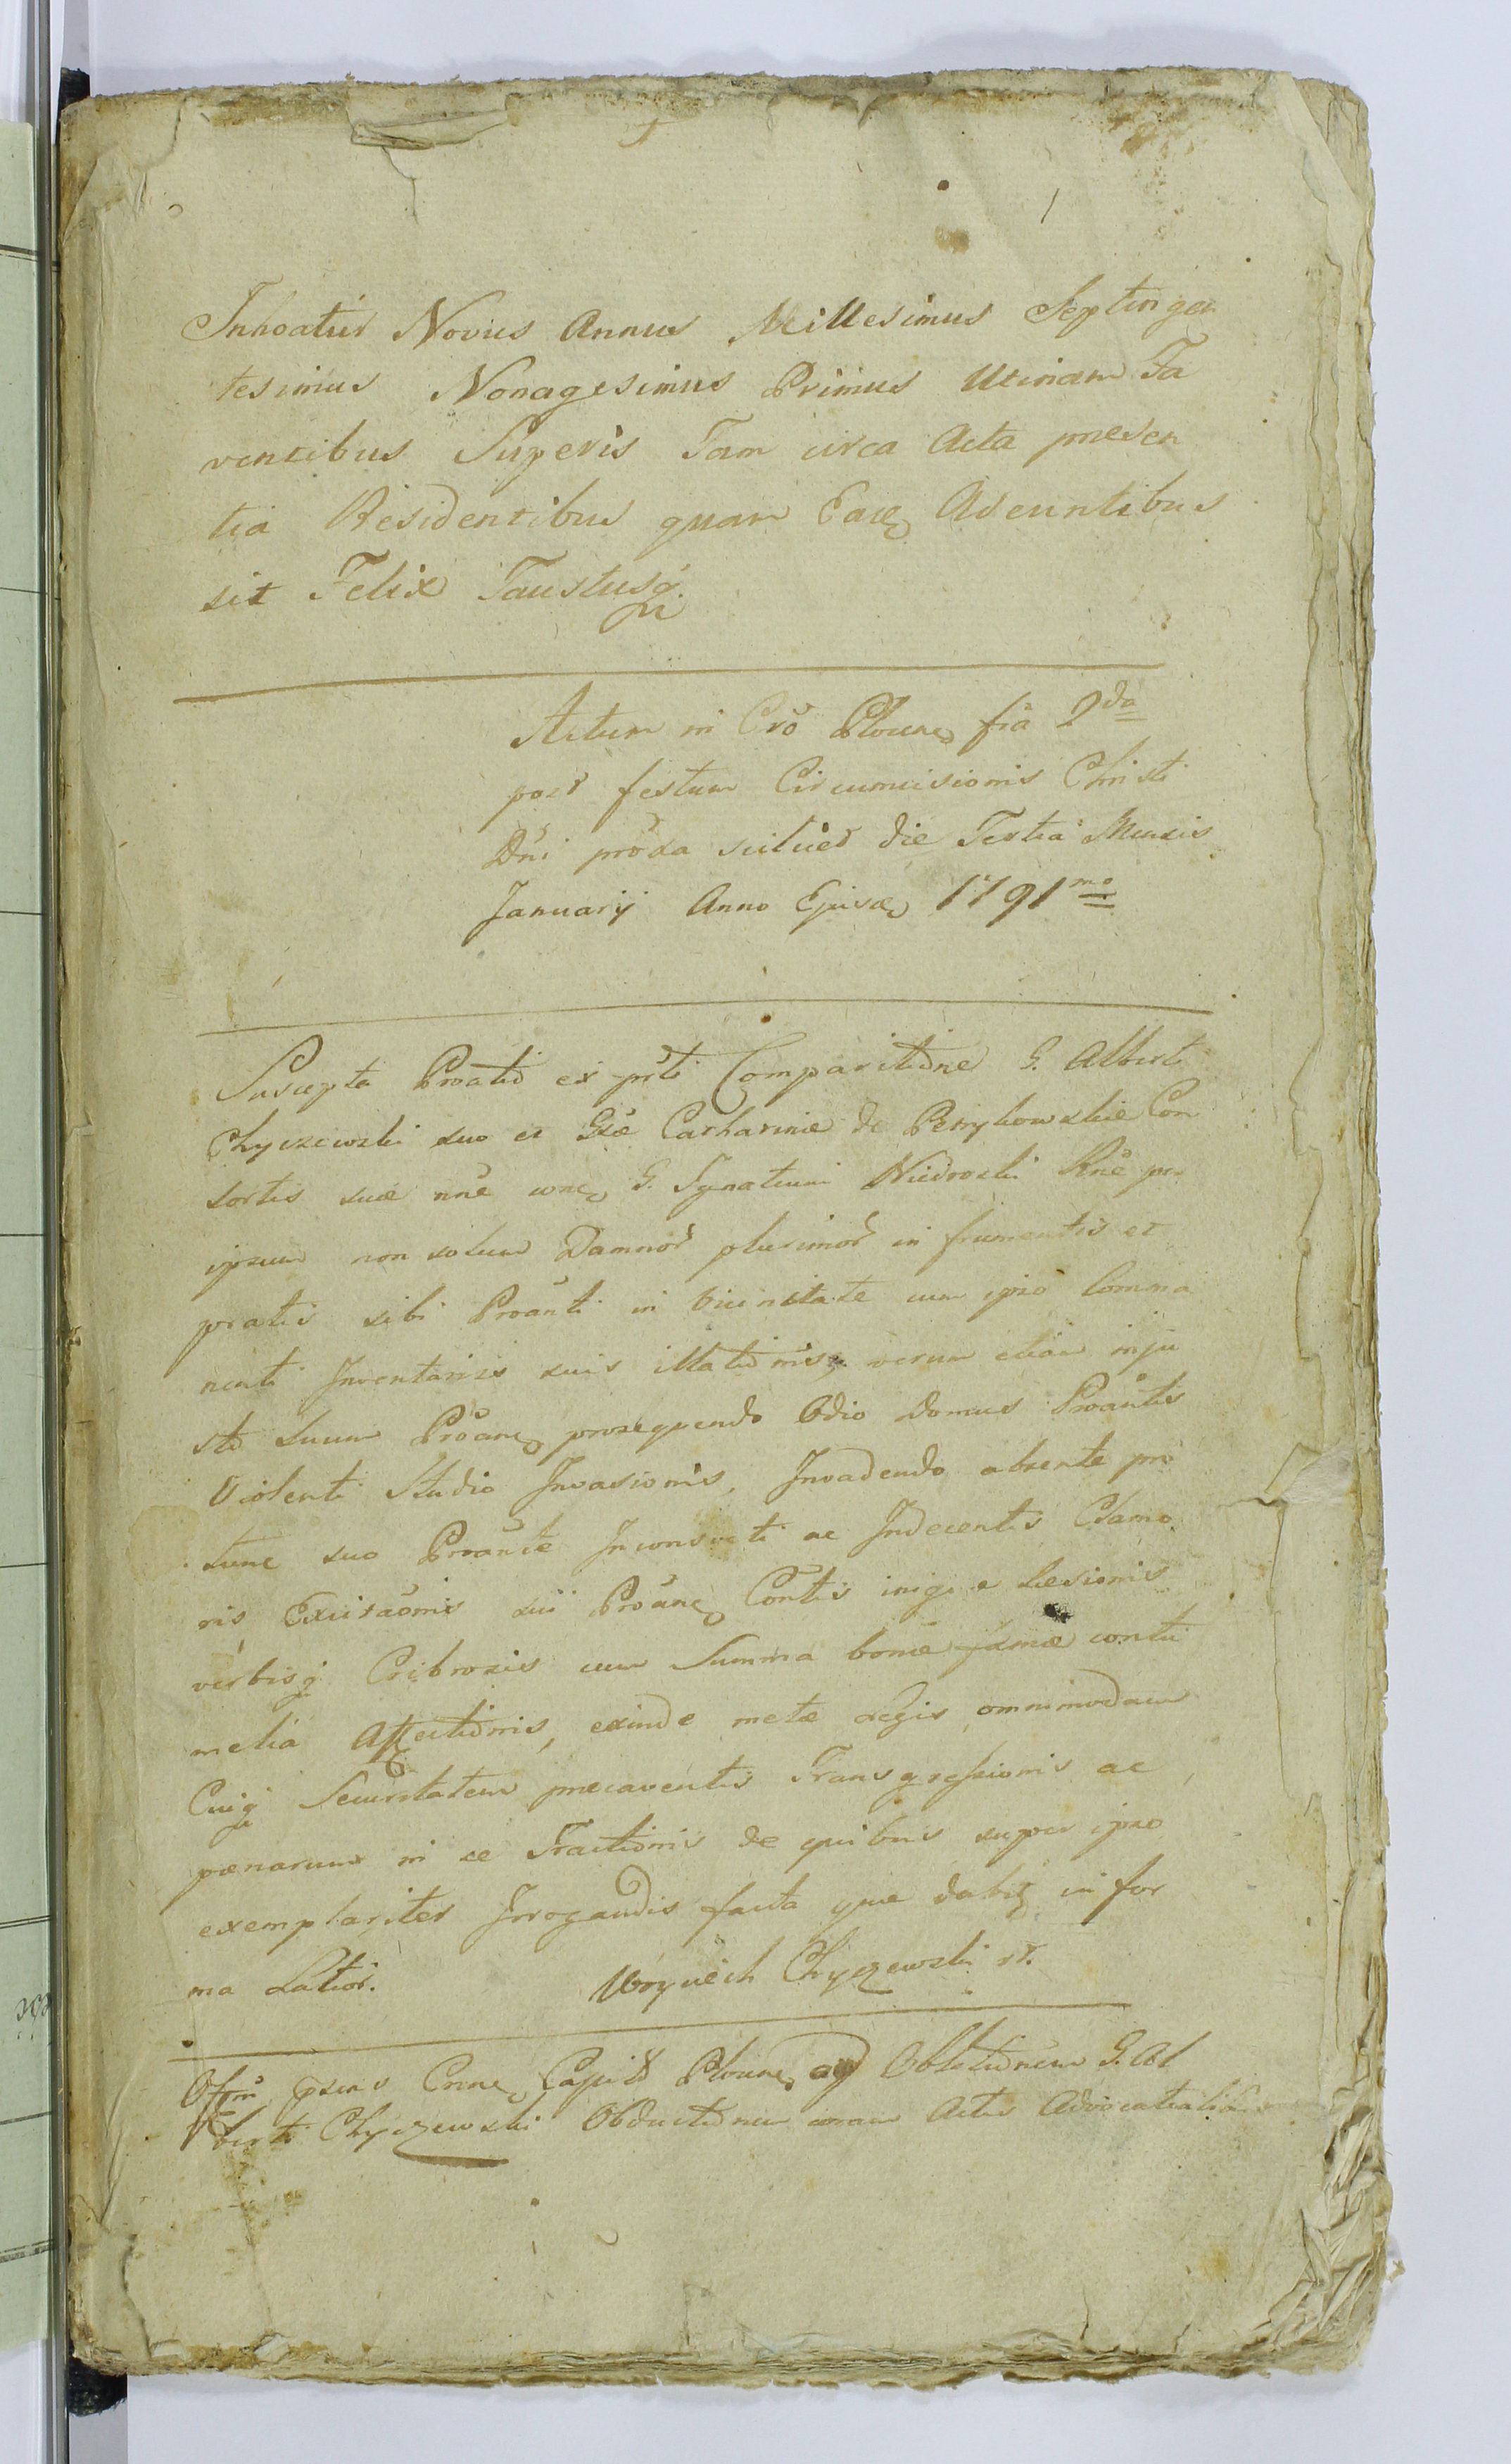 1
Inhoatur Novus Annus Millesimus Septingen
tesimus Nonagesimus Primus Utinam Fa
ventibus Superis Tam circa Acta presen
tia Residentibus quam Eaq Adeuntibus
sit Felix Faustusq.
Actum in Cro Plocen fia 2da
post festum Circumcisionis Christi
Dni proxa scilicet die Tertia Mensis
Januarij Anno Ejusd 1791mo
Suscepta Proatio ex prti Comparitione G. Alberti
Chyczewski suo et Gsæ Catharinæ de Petrykowskie Con
sortis suæ nne conq G. Ignatium Niedroski Rne per
ipsum non solum Damnor plurimor in frumentis et
pratis sibi Proanti in Vicinitate cum ipso Comma
nenti Inventariis suis illationis, verum etiam inju
sto suum Proanq prosequendo Odio Domus Proantis
Violenti Studio Invasionis, Invadendo absente pro
tunc suo Proante Inconsveti ac Indecentis Clamo
ris Excitaonis sui Proanq Contis iniq e Læsionis
verbisq Cribrosis cum Summa bonæ famæ contu
melia Affectionis, exinde metæ Legis omnimodam
Cuiq Securitatem præcaventis Transgressionis ac
pænarum in se Tractionis de quibus super ipso
exemplariter Irrogandis facta quæ dabit in for
ma Latior. Woyciech Chyczewski st.
Offm psens Crne Capit Plocen ad Oblationem G. Al
berti Chyczewski Obductionem coram Actis Advocatialib